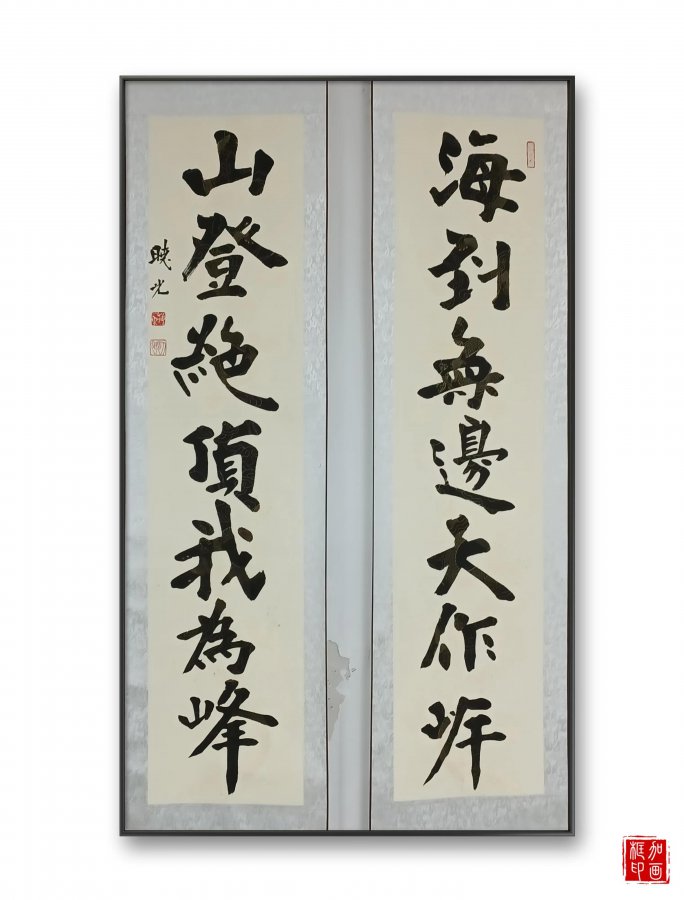 海到無邊天作岸
山登絕頂我為峰
曉光
加画
框印